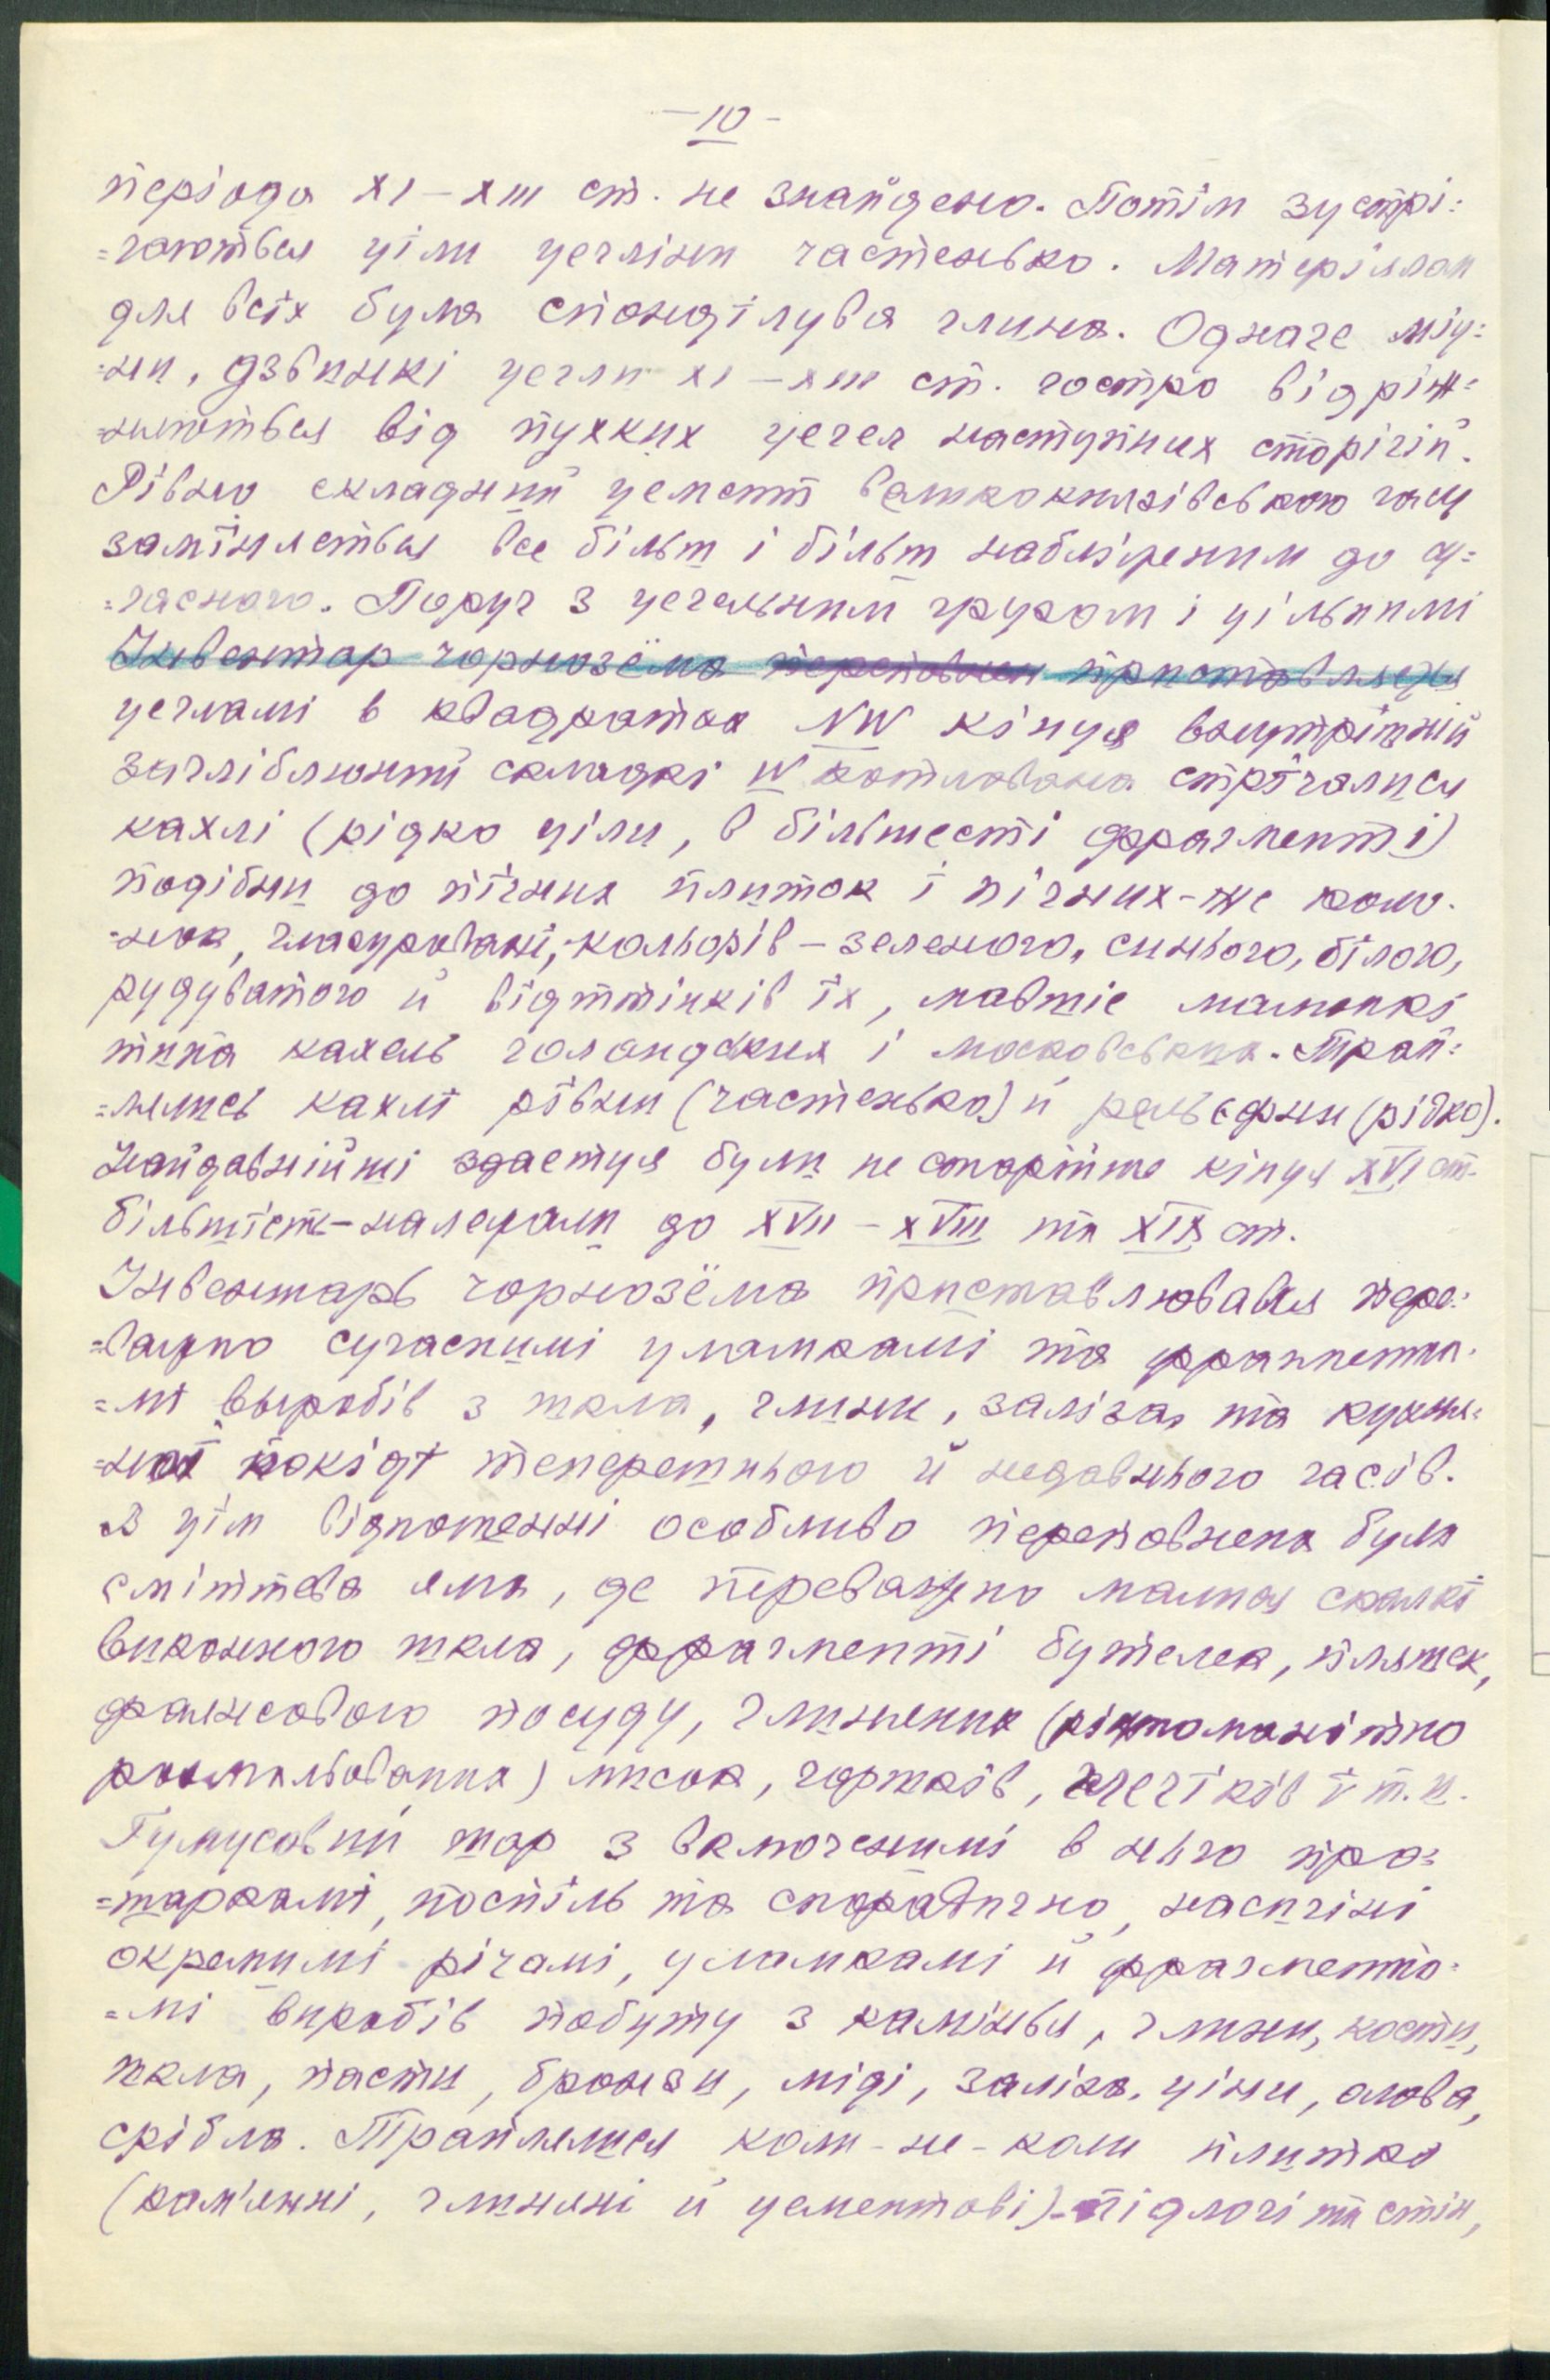 —10—
періода XI—XIII ст. не знайдено. Потім зустрі=
=чаються ціли цеглини частенько. Матеріялом
для всіх була спонділува глина. Одначе міц=
=ни, дзвинкі цегли XI—XIII ст. гостро відріж=
=няються від пухких цегел наступних сторічій.
Рівно складний цемент великокнязівського часу
заміняється все більш і більш наближеним до су=
=часного. Поруч з цегельним грузом і цільнимі
Инвентар чорнозёма переповнен приставляеця
цегламі в квадратах NW кінця внутрішній
загліблюнний складкі W котлована стрічалися
кахлі (рідко ціли, в більшесті фрагменті)
подібни до пічних плиток і пічних-же коло=
=нок, глазуровані, кольорів — зеленого, синього, білого,
рудуватого й відттінків їх, мавшіе малюнкі
типа кахель голандских і московських. Трап=
=лялись кахлі рівни (частенько) й рельєфни (рідко).
Найдавнійші здаеться були не старійше кінця XVI ст.
більшість-належали до XVII — XVIII та XIX ст.
Инвентарь чорнозёма приставлювався пере=
=важно сучаснимі уламкамі та фрагмента=
=мі выробів з шкла, глини, заліза, та кухон=
=ної покіді теперешнього й недавнього часів.
В цім відношенні особливо переповнена була
смінттева яма, де переважно малися скалкі
виконного шкла, фрагменті бутелек, пляшек,
фаянсового посуду, глиненних (ріжтоманітно
розмальованних) мисок, горшків, глечіків і т.и.
Гумусовий шар з включенимі в нього про=
=шаркамі, поспіль та спорадично, насичіні
окремимі річамі, уламкамі й фрагмента=
=мі виробів побуту з каміньня, глини, кости,
шкла, пасти, бронзи, міді, заліза, ціни, олова,
срібла. Траплялися коли-не-коли плитки
(кам'янні, глиняні й цементові)-підлогі та стін,